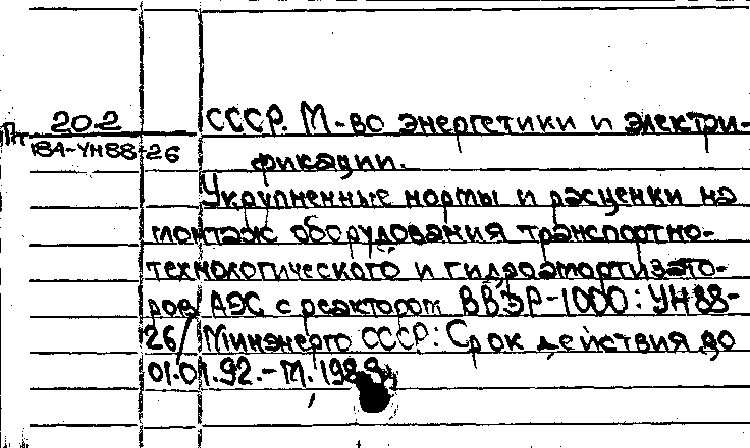 20-2
Пт
184-УН88-26
СССР. М-во энергетики и электри-
фикации.
Укрупненные нормы и расценки на
монтаж оборудования транспортно-
технологического и гидроамортизато-
ров АЭС с реактором ВВЭР-1000: УН88-
26/Минэнерго СССР: Срок действия до
01.01.92.-М. 1988